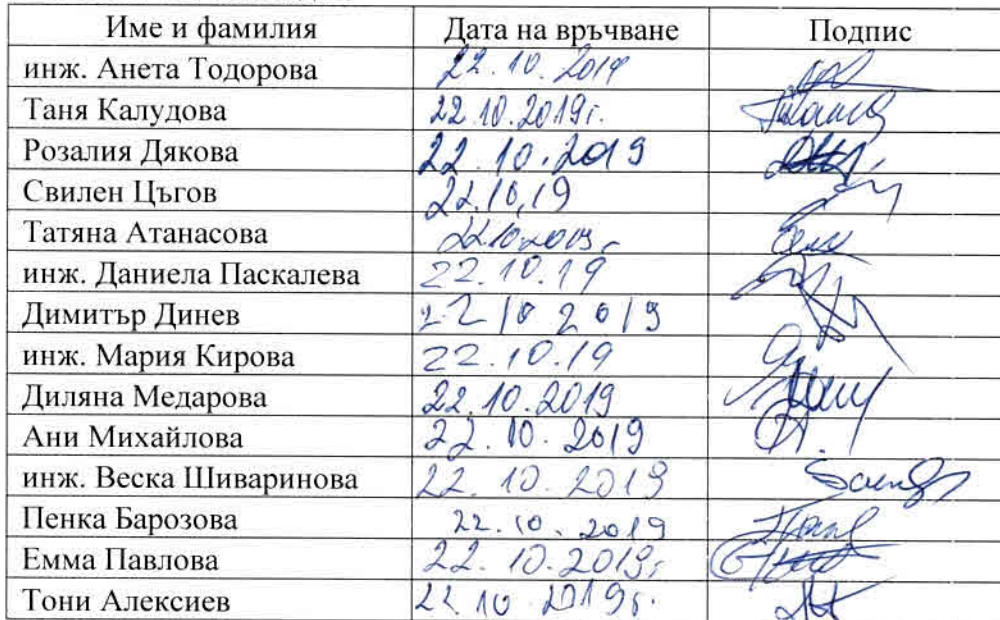 Име и фамилия Дата на връчване Подпис
инж. Анета Тодорова 22.10.2019
Таня Калудова 22.10.2019г.
Розалия Дякова 22.10.2019
Свилен Цъгов 22.10.19
Татяна Атанасова 22.10.2019г
инж. Даниела Паскалева 22.10.19
Димитър Динев 22 10 2019
инж. Мария Кирова 22.10.19
Диляна Медарова 22.10.2019
Ани Михайлова 22.10.2019
инж. Веска Шиваринова 22.10.2019
Пенка Барозова 22.10.2019
Емма Павлова 22.10.2019г
Тони Алексиев 22.10.2019г.